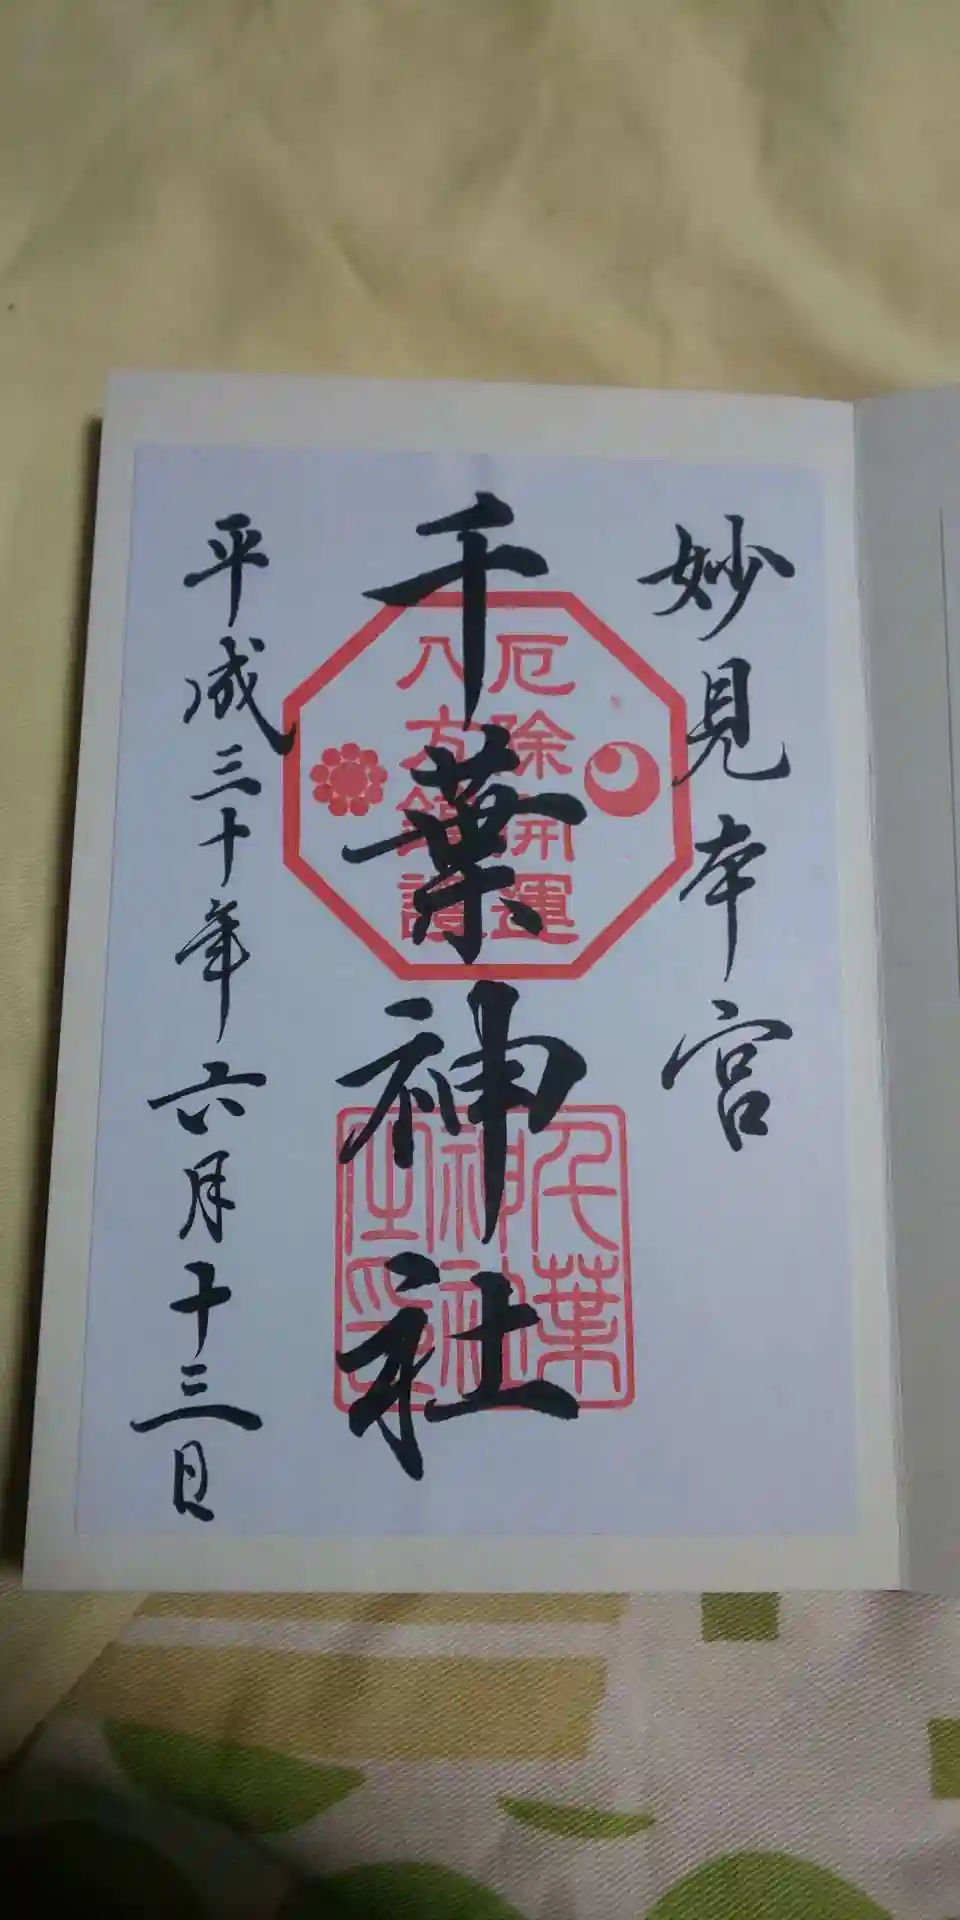 妙見本宮
千葉神社
平成三十年六月十三日
厄除開運
八方鎮護
千葉
神社